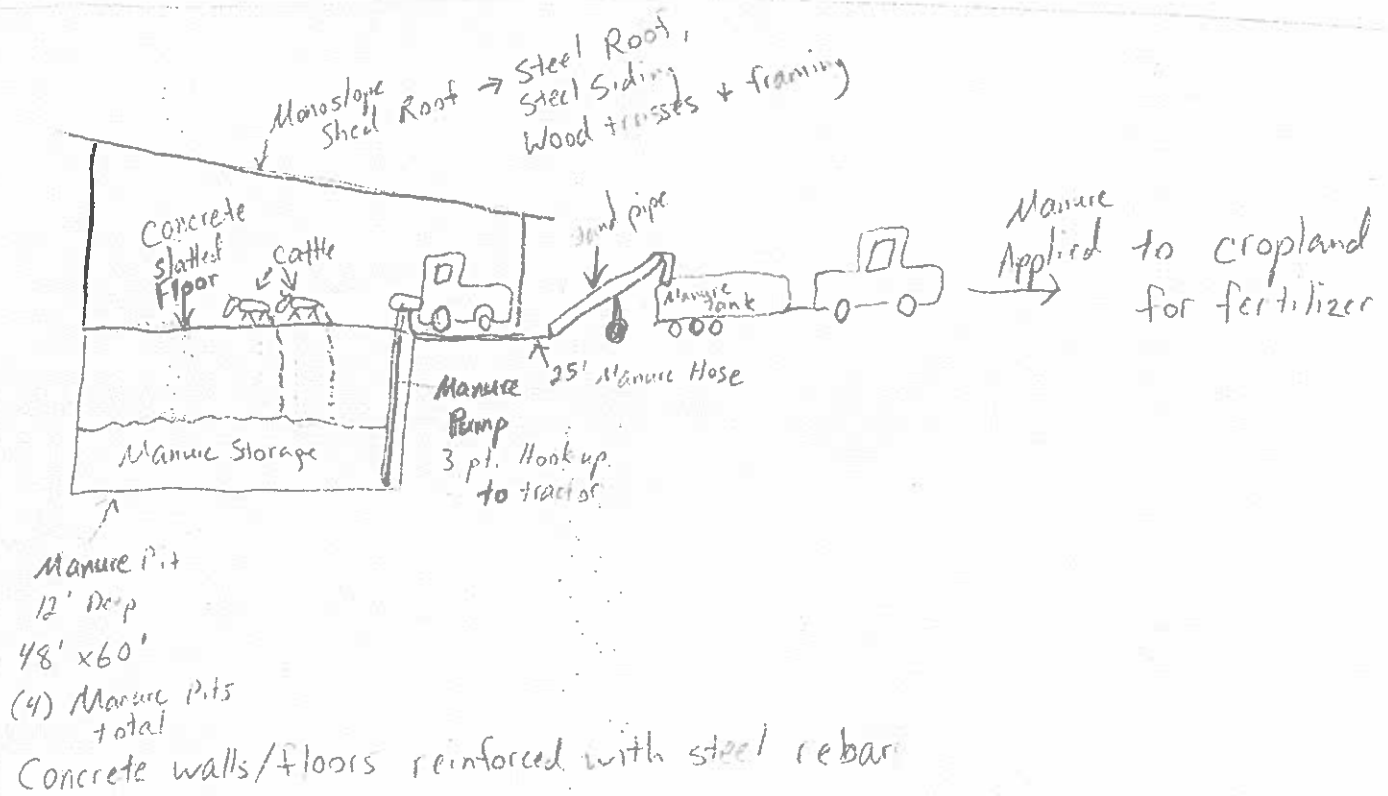 Monoslope
Shed Roof → Steel Roof,
Steel Siding
Wood trusses + framing
Concrete
Slatted
Floor
Cattle
pipe
Manure
Tank
Manure
Applied to cropland
for fertilizer
25' Manure Hose
Manure
Pump
3 pt. Hook up
to tractor
Manure Storage
Manure Pit
12' Deep
48' x60'
(4) Manure Pits
total
Concrete walls/floors reinforced with steel rebar